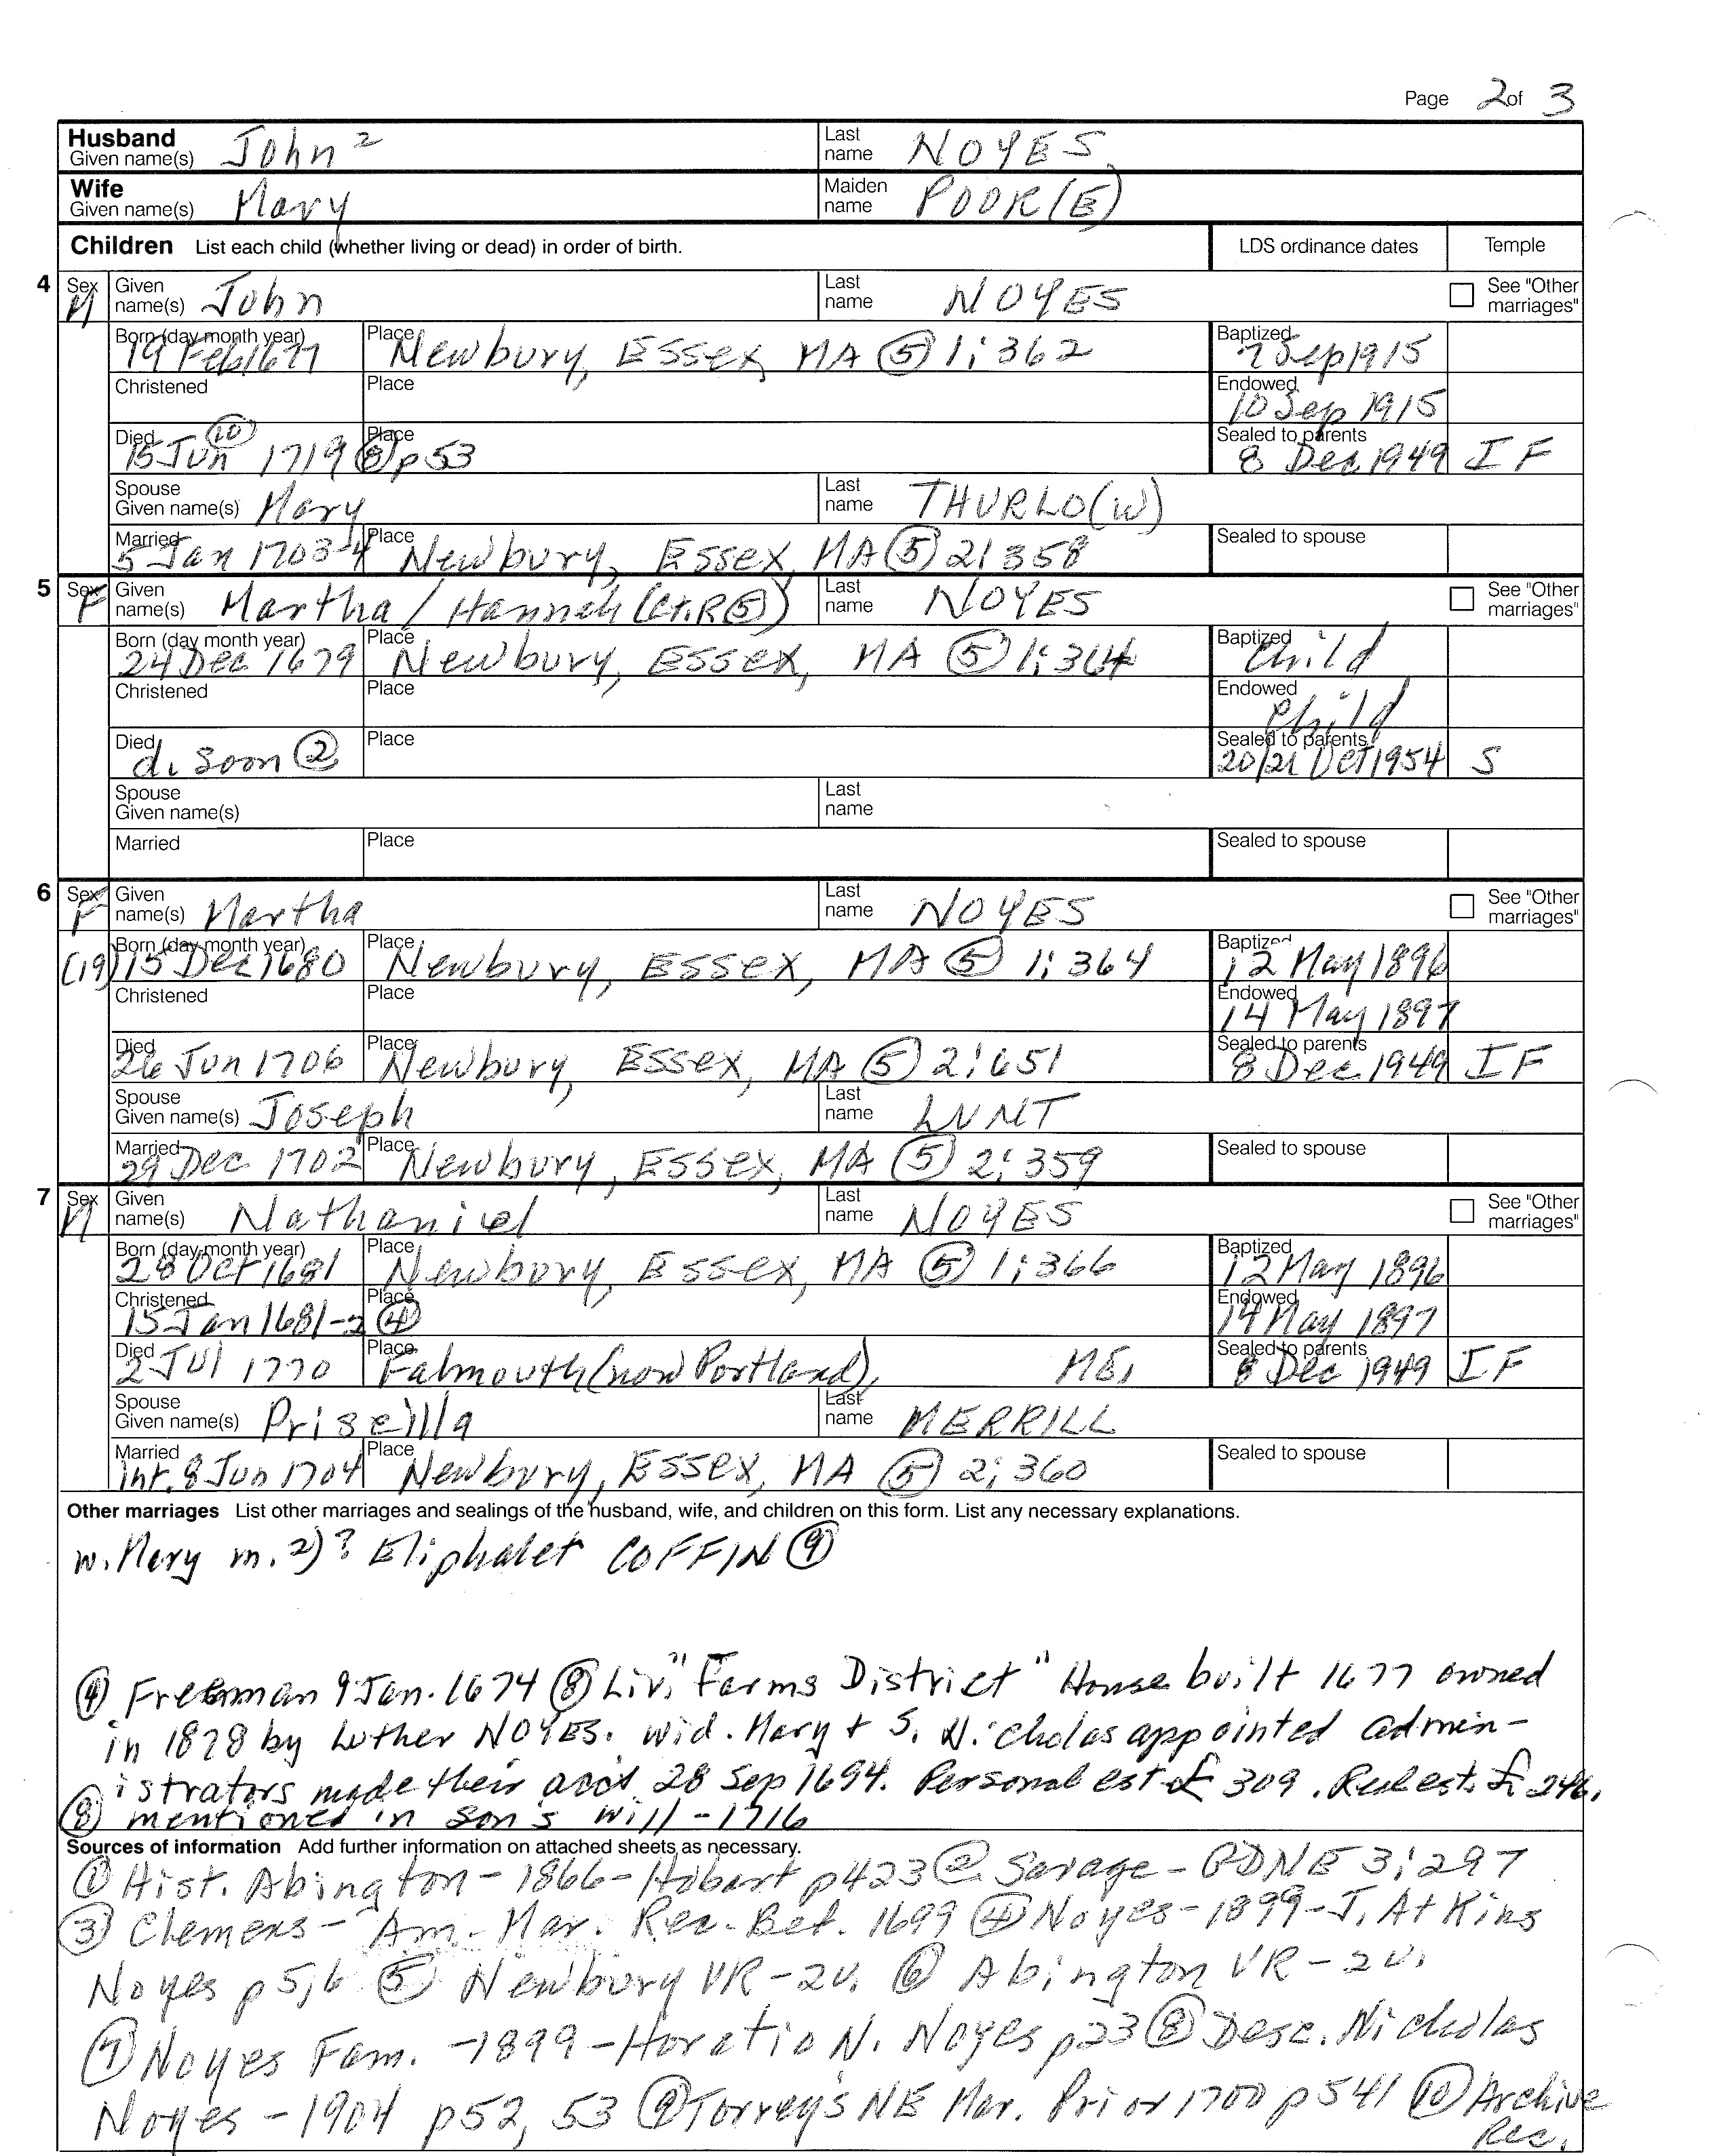 Page 2 of 3
Husband Given name(s) John² Last name NOYES
Wife Given name(s) Mary Maiden name POOR(E)
Children List each child (whether living or dead) in order of birth. LDS ordinance dates Temple
4 Sex M Given name(s) John Last name NOYES See "Other marriages"
Born (day month year) 19 Feb 1677 Place Newbury, Essex, MA ⑤ 1:362 Baptized 7 Sep 1915
Christened Place Endowed 10 Sep 1915
Died 15 Jun ⑩ 1719 Place ⑧ p53 Sealed to parents 8 Dec 1949 IF
Spouse Given name(s) Mary Last name THURLO(W)
Married 5 Jan 1703-4 Place Newbury, Essex, MA ⑤ 2:358 Sealed to spouse
5 Sex F Given name(s) Martha / Hannah (Ct.R ⑤) Last name NOYES See "Other marriages"
Born (day month year) 24 Dec 1679 Place Newbury, Essex, MA ⑤ 1:364 Baptized Child
Christened Place Endowed Child
Died d. soon ② Place Sealed to parents 20/21 Oct 1954 S
Spouse Given name(s) Last name
Married Place Sealed to spouse
6 Sex F Given name(s) Martha Last name NOYES See "Other marriages"
(19) Born (day month year) 15 Dec 1680 Place Newbury, Essex, MA ⑤ 1:364 Baptized 12 May 1896
Christened Place Endowed 14 May 1897
Died 26 Jun 1706 Place Newbury, Essex, MA ⑤ 2:651 Sealed to parents 8 Dec 1949 IF
Spouse Given name(s) Joseph Last name LUNT
Married 29 Dec 1702 Place Newbury, Essex, MA ⑤ 2:359 Sealed to spouse
7 Sex M Given name(s) Nathaniel Last name NOYES See "Other marriages"
Born (day month year) 28 Oct 1681 Place Newbury, Essex, MA ⑤ 1:366 Baptized 12 May 1896
Christened 15 Jan 1681-2 Place ④ Endowed 14 May 1897
Died 2 Jul 1770 Place Falmouth (now Portland), ME, Sealed to parents 8 Dec 1949 IF
Spouse Given name(s) Priscilla Last name MERRILL
Married int. 8 Jun 1704 Place Newbury, Essex, MA ⑤ 2:360 Sealed to spouse
Other marriages List other marriages and sealings of the husband, wife, and children on this form. List any necessary explanations.
w. Mary m. 2)? Eliphalet COFFIN ⑨
④ Freeman 9 Jan. 1674 ⑧ Liv. "Farms District" House built 1677 owned
in 1878 by Luther NOYES. Wid. Mary + S. Nicholas appointed admin-
istrators made their acct 28 Sep 1694. Personal est £ 309. Real est. £ 246.
⑧ mentioned in son's will - 1716
Sources of information Add further information on attached sheets as necessary.
① Hist. Abington - 1866 - Hobart p423 ② Savage - GDNE 3:297
③ Clemens - Am. Mar. Rec. Bef. 1699 ④ Noyes - 1899 - J. Atkins
Noyes p5,6 ⑤ Newbury VR - 2v. ⑥ Abington VR - 2v.
⑦ Noyes Fam. - 1899 - Horatio N. Noyes p23 ⑧ Desc. Nicholas
Noyes - 1904 p52, 53 ⑨ Torrey's NE Mar. Prior 1700 p541 ⑩ Archive
Rec.